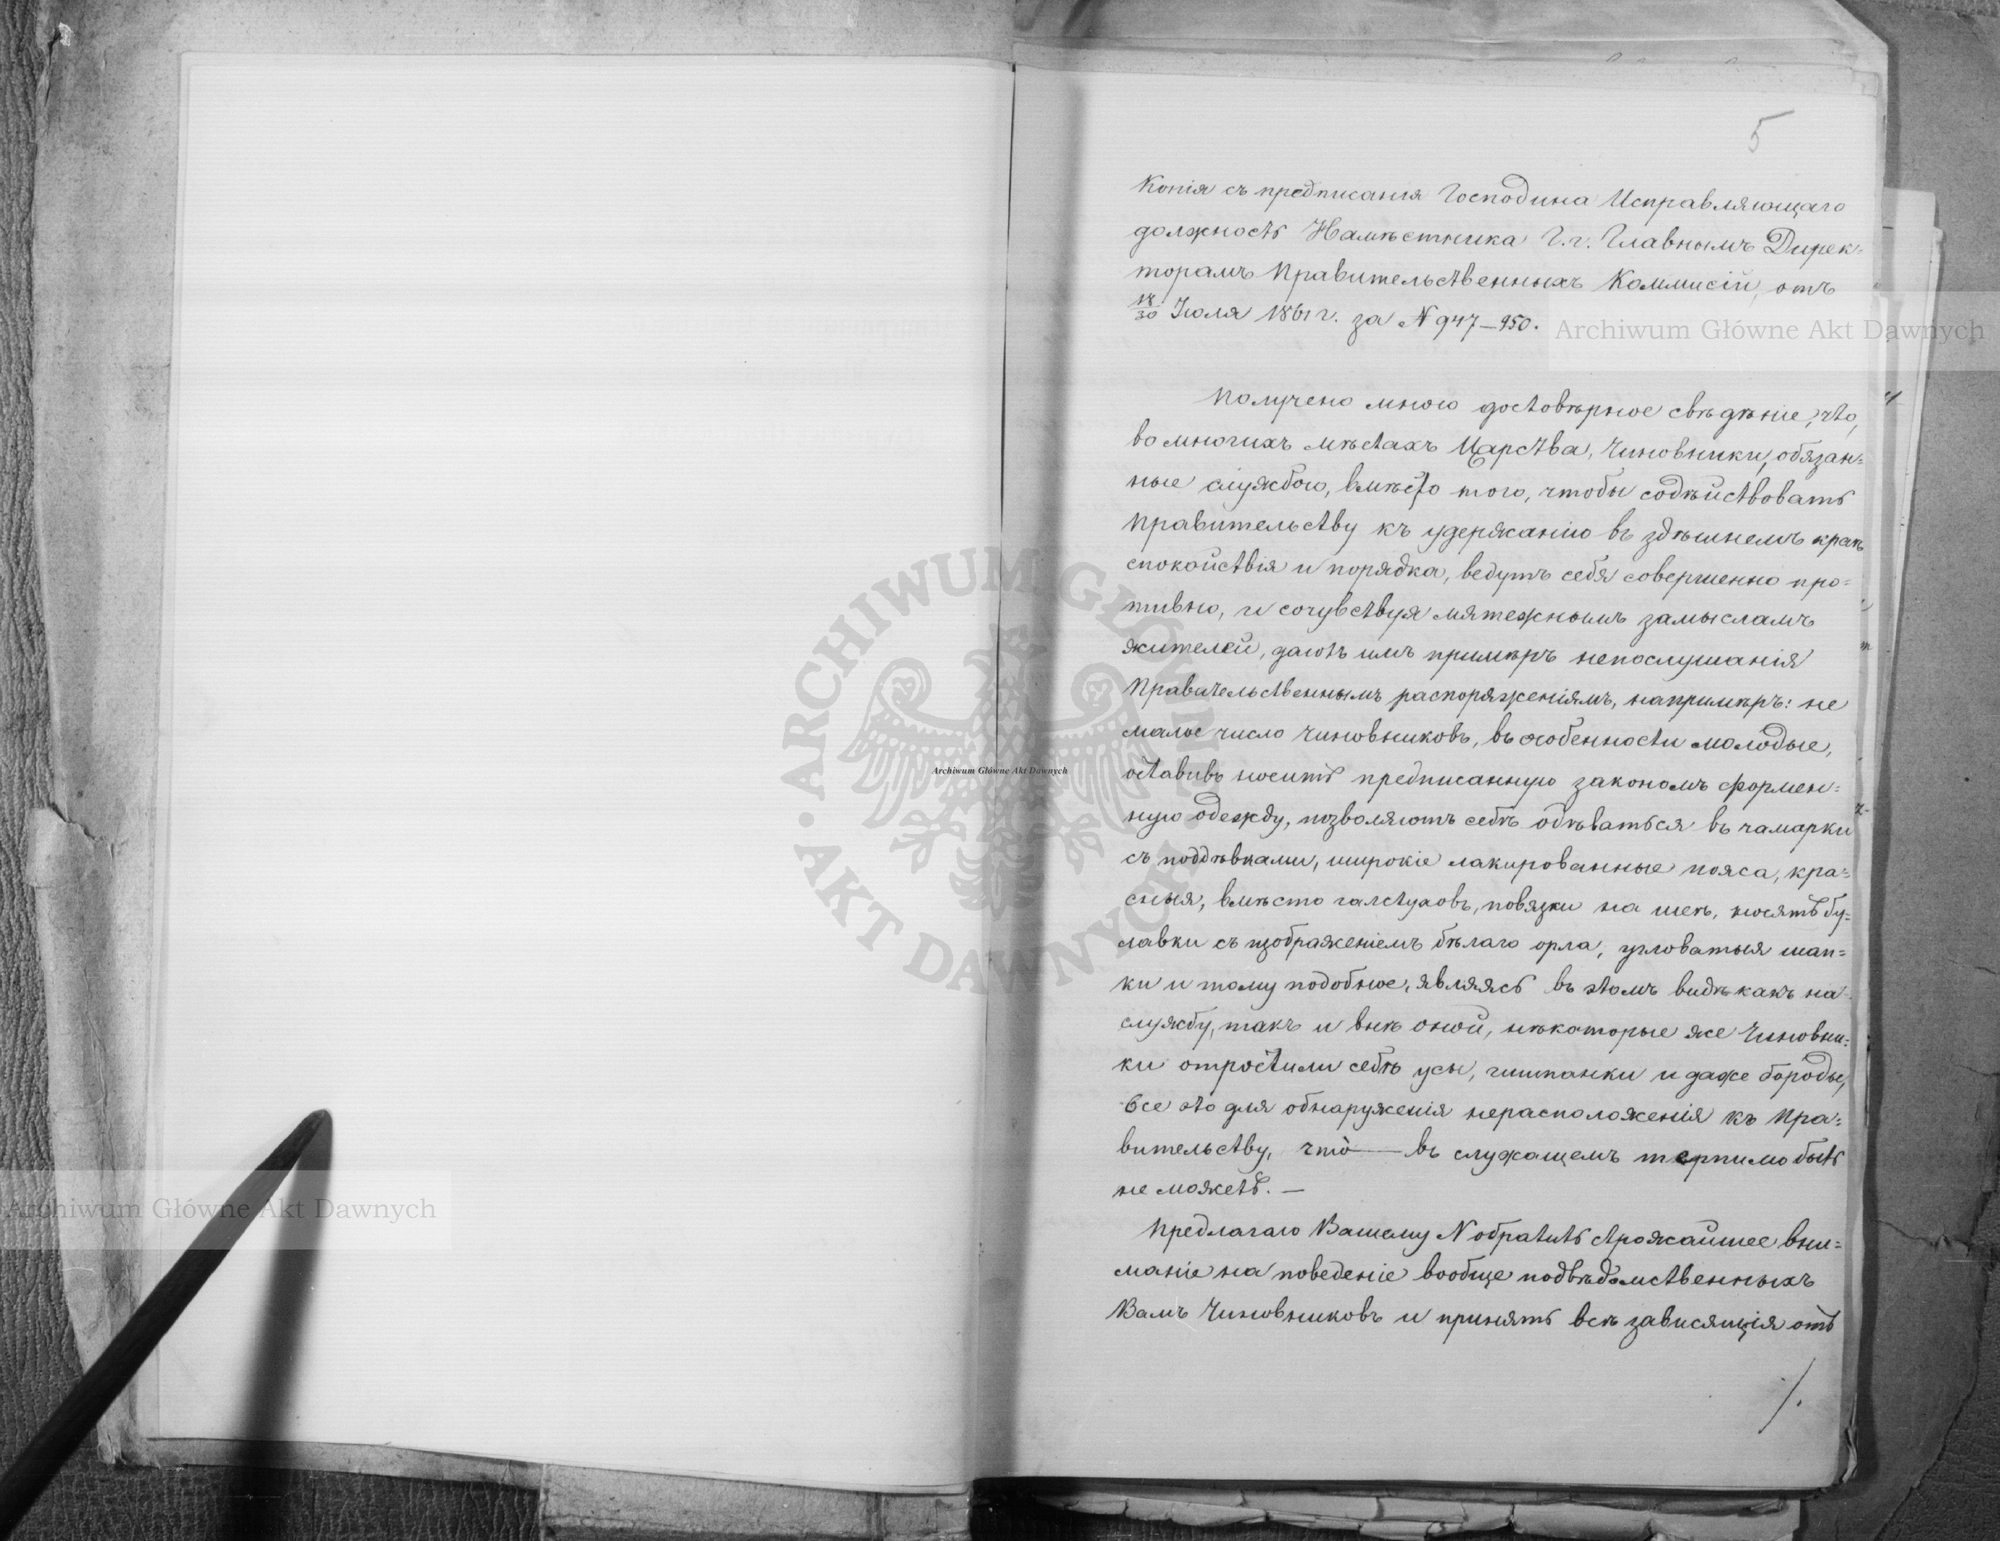 5
Копія съ предписанія Господина Исправляющаго
должность Намѣстника Г.г. Главнымъ Дирек=
торамъ Правительственныхъ Коммисій, отъ
18/30 Іюля 1861 г. за № 947–950.
Получено мною достовѣрное свѣдѣніе, что,
во многихъ мѣстахъ Царства, Чиновники, обязан=
ные службою, вмѣсто того, чтобы содѣйствовать
Правительству къ удержанію въ здѣшнемъ краѣ
спокойствія и порядка, ведутъ себя совершенно про=
тивно, и сочувствуя мятежнымъ замысламъ
жителей, даютъ имъ примѣръ непослушанія
Правительственнымъ распоряженіямъ, напримѣръ: не
малое число Чиновниковъ, въ особенности молодые,
оставивъ носить предписанную закономъ формен=
ную одежду, позволяютъ себѣ одѣваться въ чамарки
съ поддѣвками, широкіе лакированные пояса, кра=
сныя, вмѣсто галстуховъ, повязки на шеѣ, носятъ бу=
лавки съ изображеніемъ бѣлаго орла, угловатыя шап=
ки и тому подобное, являясь въ этомъ видѣ какъ на
службу, такъ и внѣ оной, нѣкоторые же Чиновни=
ки отростили себѣ усы, гишпанки и даже бороды,
все это для обнаруженія нерасположенія къ Пра=
вительству, что̀ — въ служащемъ терпимо быть
не можетъ. —
Предлагаю Вашему N обратить строжайшее вни=
маніе на поведеніе вообще подвѣдомственныхъ
Вамъ Чиновниковъ и принять всѣ зависящія отъ
·/.
Archiwum Główne Akt Dawnych
Archiwum Główne Akt Dawnych
Archiwum Główne Akt Dawnych
· ARCHIWUM GŁÓWNE · AKT DAWNYCH